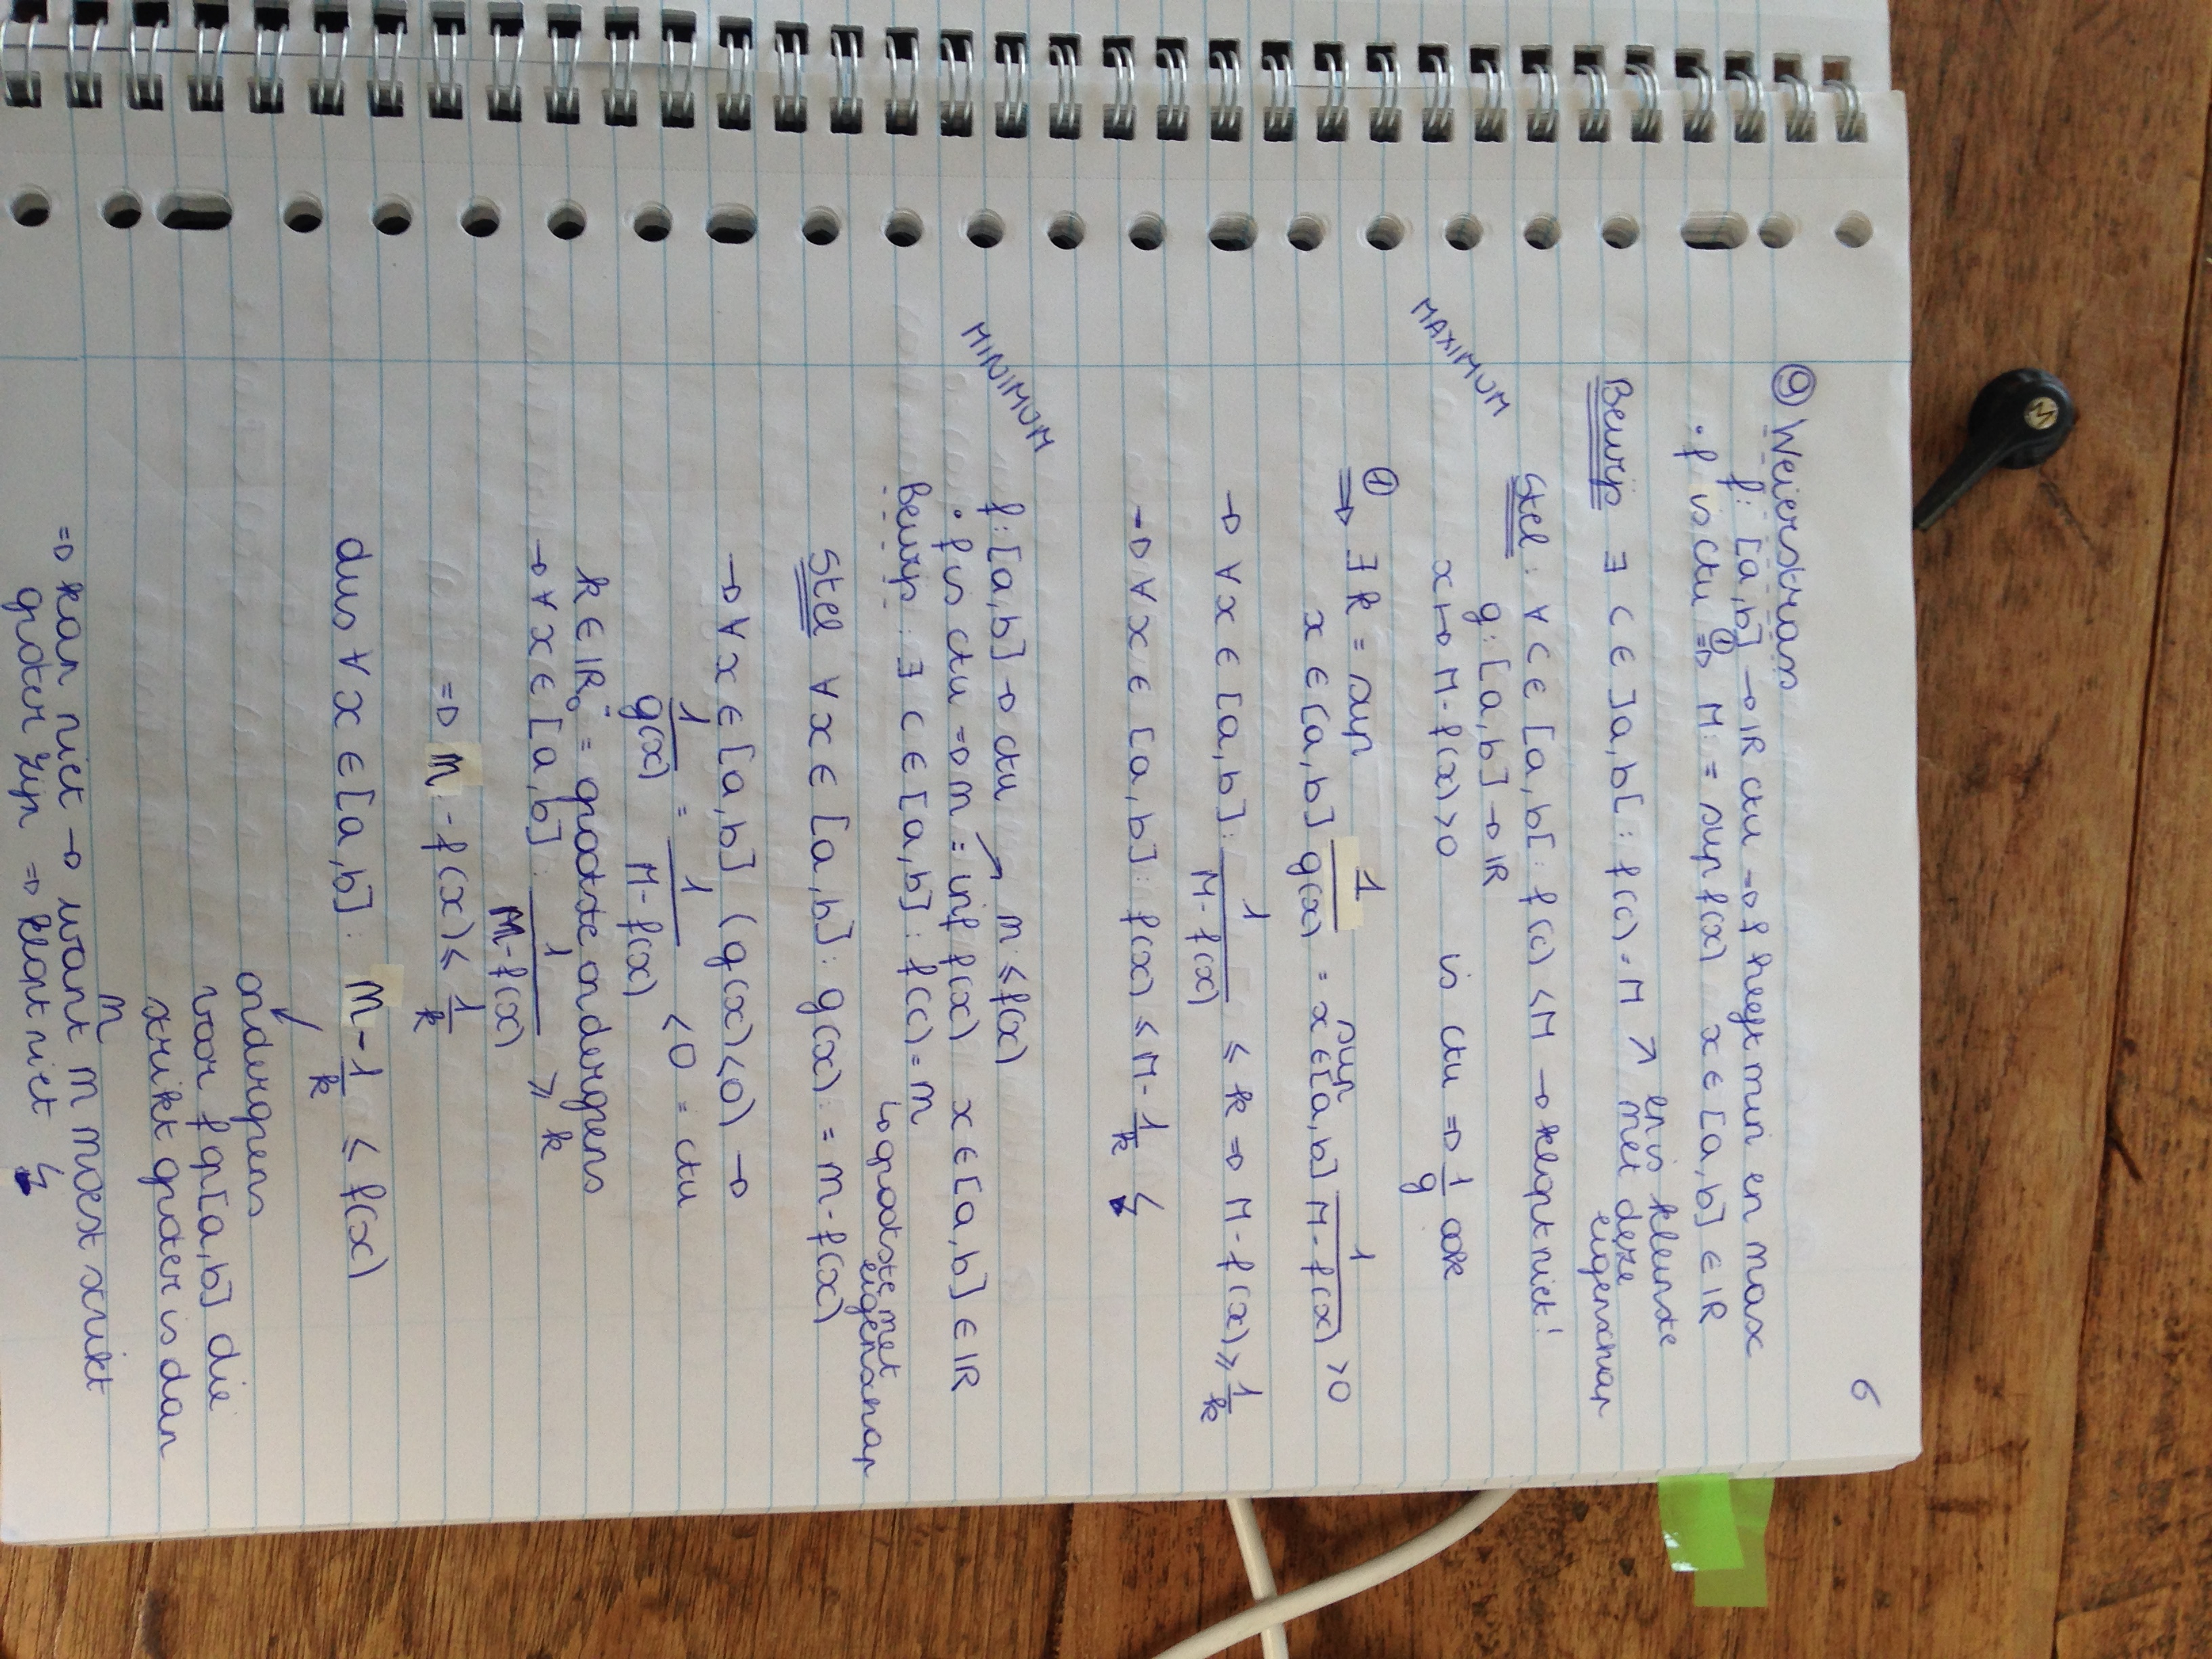 6
⑨ Weierstrass
f: [a,b] → ℝ ctu ⇒ f heeft min en max
• f is ctu ①⇒ M: = sup f(x) x ∈ [a,b] ∈ ℝ
↗ en is kleinste
Bewijs ∃ c ∈ ]a,b[ : f(c) = M met deze
eigenschap
Stel : ∀ c ∈ [a,b[ : f(c) < M → klopt niet!
g: [a,b] → ℝ
MAXIMUM
x ↦ M - f(x) > 0 is ctu ⇒ 1/g ook
① ⇒ ∃ k = sup x ∈ [a,b] 1/g(x) = sup x ∈ [a,b] 1/(M - f(x)) > 0
→ ∀ x ∈ [a,b] : 1/(M - f(x)) ≤ k ⇒ M - f(x) ≥ 1/k
→ ∀ x ∈ [a,b] : f(x) ≤ M - 1/k ↯
MINIMUM
f: [a,b] → ctu ↗ m ≤ f(x)
• f is ctu ⇒ m = inf f(x) x ∈ [a,b] ∈ ℝ
Bewijs : ∃ c ∈ [a,b] : f(c) = m
↳ grootste met
eigenschap
Stel ∀ x ∈ [a,b] : g(x) : = m - f(x)
→ ∀ x ∈ [a,b] (g(x) < 0) →
1/g(x) = 1/(M - f(x)) < 0 = ctu
k ∈ ℝ₀⁻ = grootste ondergrens
→ ∀ x ∈ [a,b] : 1/(m - f(x)) ≥ k
⇒ m - f(x) ≤ 1/k
dus ∀ x ∈ [a,b] : m - 1/k ≤ f(x)
↙
ondergrens
voor f op [a,b] die
strikt groter is dan
m
⇒ kan niet → want m moest strikt
groter zijn ⇒ klopt niet ↯